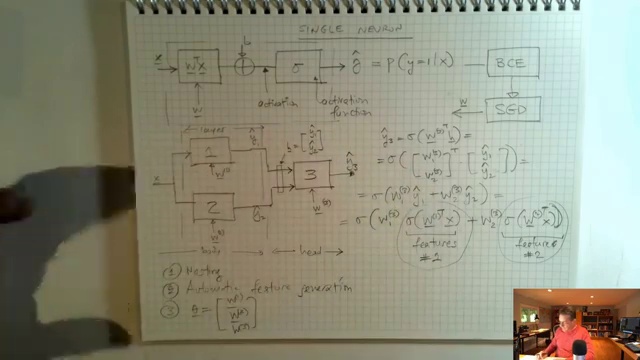 SINGLE NEURON
x
wᵀx
b
σ
ŷ = p(y=1|x)
BCE
w
activation
activation function
w
SGD
layer
ŷ₁
h = [ŷ₁ ŷ₂]
1
w⁽¹⁾
3
ŷ₃
w⁽³⁾
x
2
w⁽²⁾
ŷ₂
head
ŷ₃ = σ(w⁽³⁾ᵀ h) =
= σ([w₁⁽³⁾ w₂⁽³⁾]ᵀ [ŷ₁ ŷ₂]) =
= σ(w₁⁽³⁾ ŷ₁ + w₂⁽³⁾ ŷ₂) =
= σ(w₁⁽³⁾ σ(w⁽¹⁾ᵀx) + w₂⁽³⁾ σ(w⁽²⁾ᵀx))
features #2
features #2
① Nesting
② Automatic feature generation
③